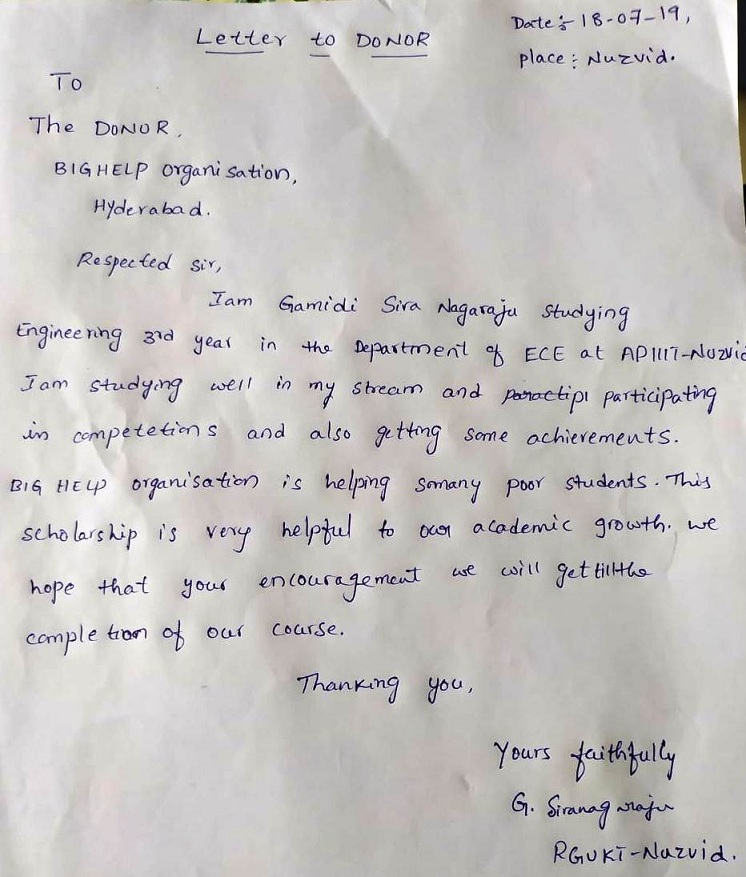 Date :- 18-07-19,
Letter to DONOR
place : Nuzvid.
To
The DONOR,
BIGHELP organisation,
Hyderabad.
Respected sir,
Iam Gamidi Siva Nagaraju studying
Engineering 3rd year in the Department of ECE at AP IIIT-Nuzvid
Iam studying well in my stream and paractipi participating
in competetions and also getting some achievements.
BIG HELP organisation is helping somany poor students. This
scholarship is very helpful to our academic growth. we
hope that your encouragement we will get tillthe
completion of our course.
Thanking you,
Yours faithfully
G. Sivanagaraju
RGUKT-Nuzvid.